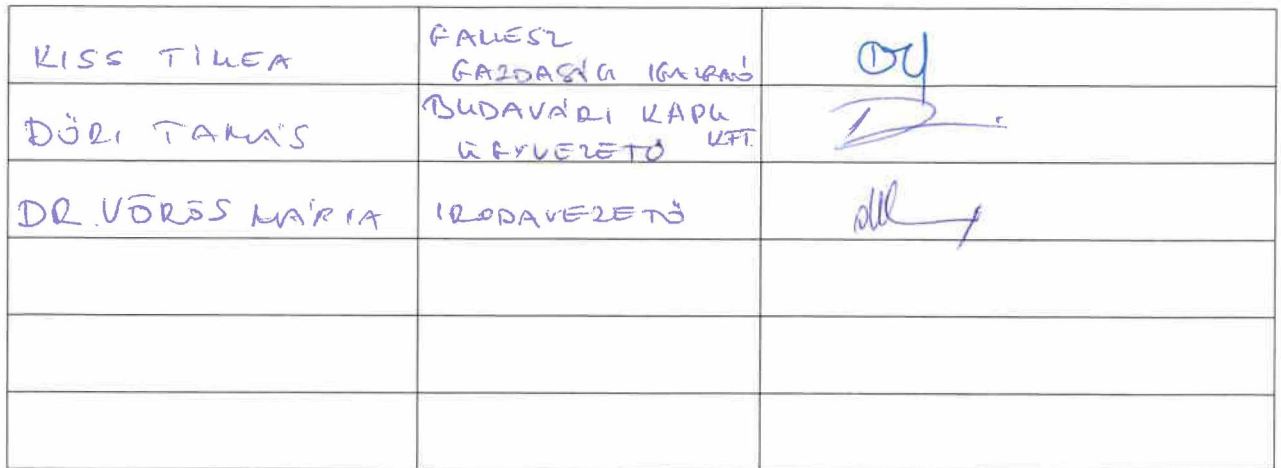 KISS TÍMEA
GAMESZ
GAZDASÁGI IGAZGATÓ
DŐRI TAMÁS
BUDAVÁRI KAPU
ÜGYVEZETŐ KFT.
DR. VÖRÖS MÁRIA
IRODAVEZETŐ